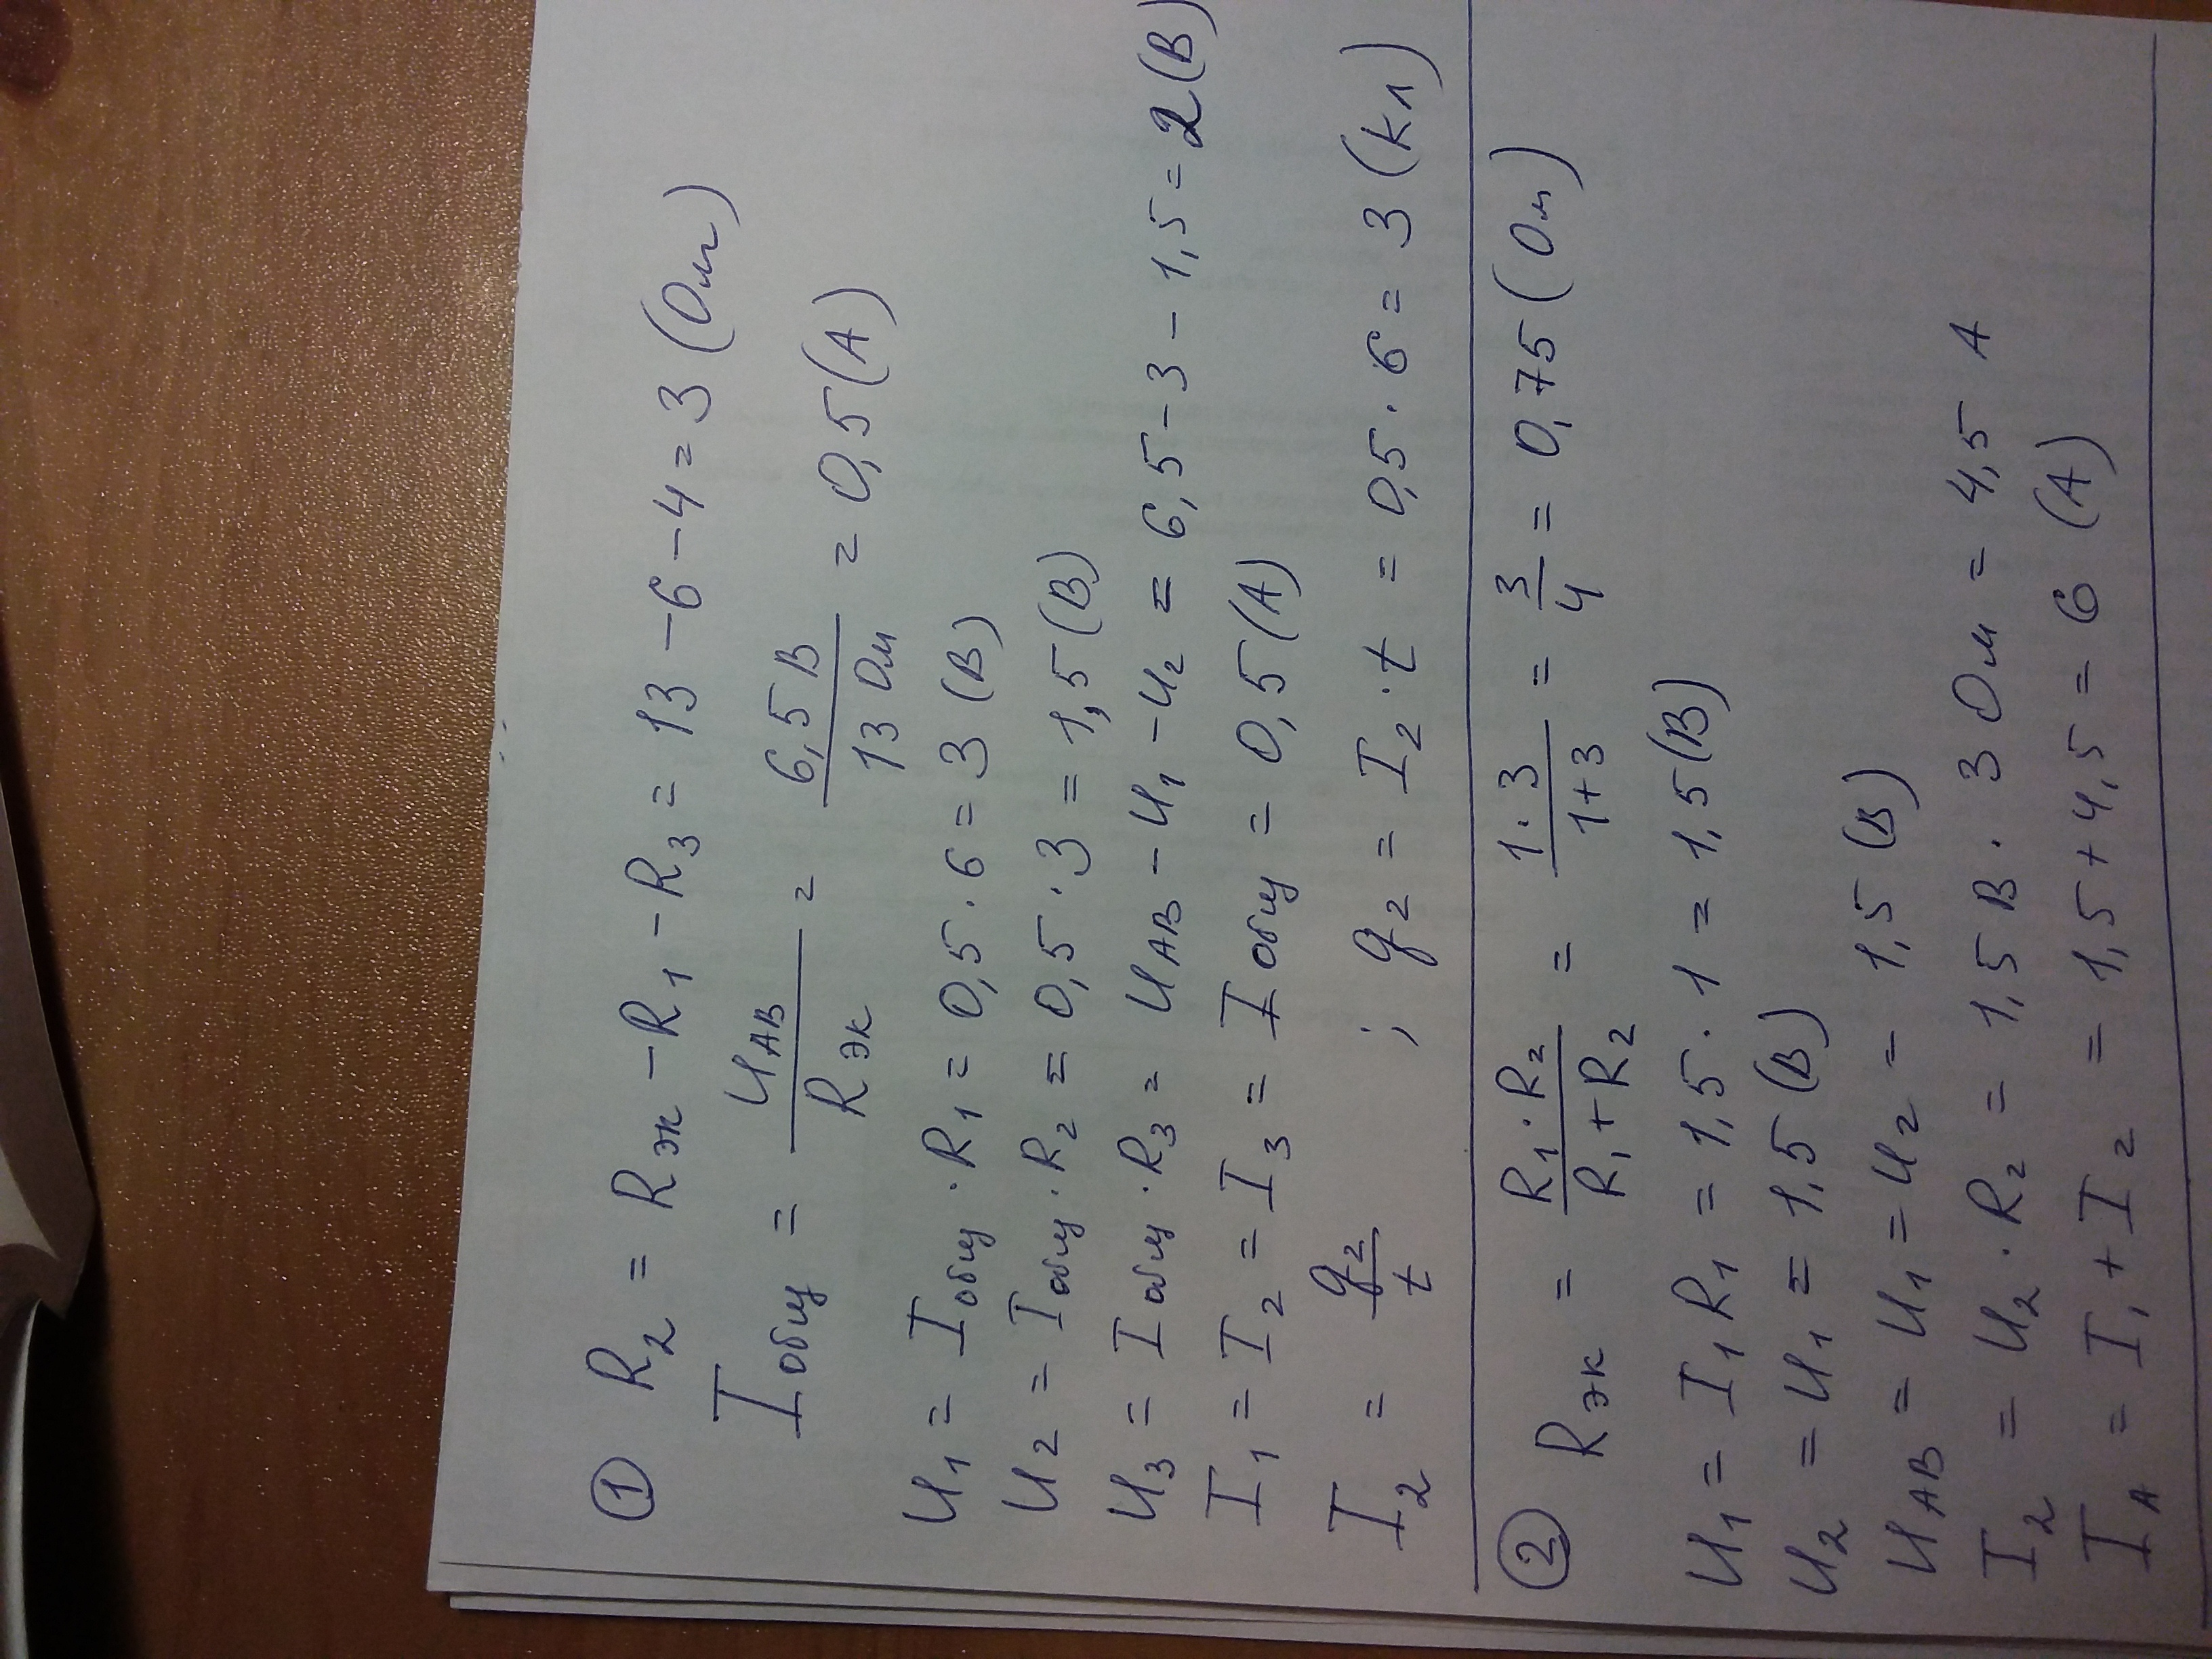 ① R₂ = Rэк - R₁ - R₃ = 13 - 6 - 4 = 3 (Ом)
Iобщ = UАВ / Rэк = 6,5 В / 13 Ом = 0,5 (А)
U₁ = Iобщ · R₁ = 0,5 · 6 = 3 (В)
U₂ = Iобщ · R₂ = 0,5 · 3 = 1,5 (В)
U₃ = Iобщ · R₃ = UАВ - U₁ - U₂ = 6,5 - 3 - 1,5 = 2 (В)
I₁ = I₂ = I₃ = Iобщ = 0,5 (А)
I₂ = q₂ / t ; q₂ = I₂ · t = 0,5 · 6 = 3 (Кл)
② Rэк = R₁ · R₂ / R₁ + R₂ = 1 · 3 / 1 + 3 = 3 / 4 = 0,75 (Ом)
U₁ = I₁ R₁ = 1,5 · 1 = 1,5 (В)
U₂ = U₁ = 1,5 (В)
UАВ = U₁ = U₂ = 1,5 (В)
I₂ = U₂ · R₂ = 1,5 В · 3 Ом = 4,5 А
IА = I₁ + I₂ = 1,5 + 4,5 = 6 (А)